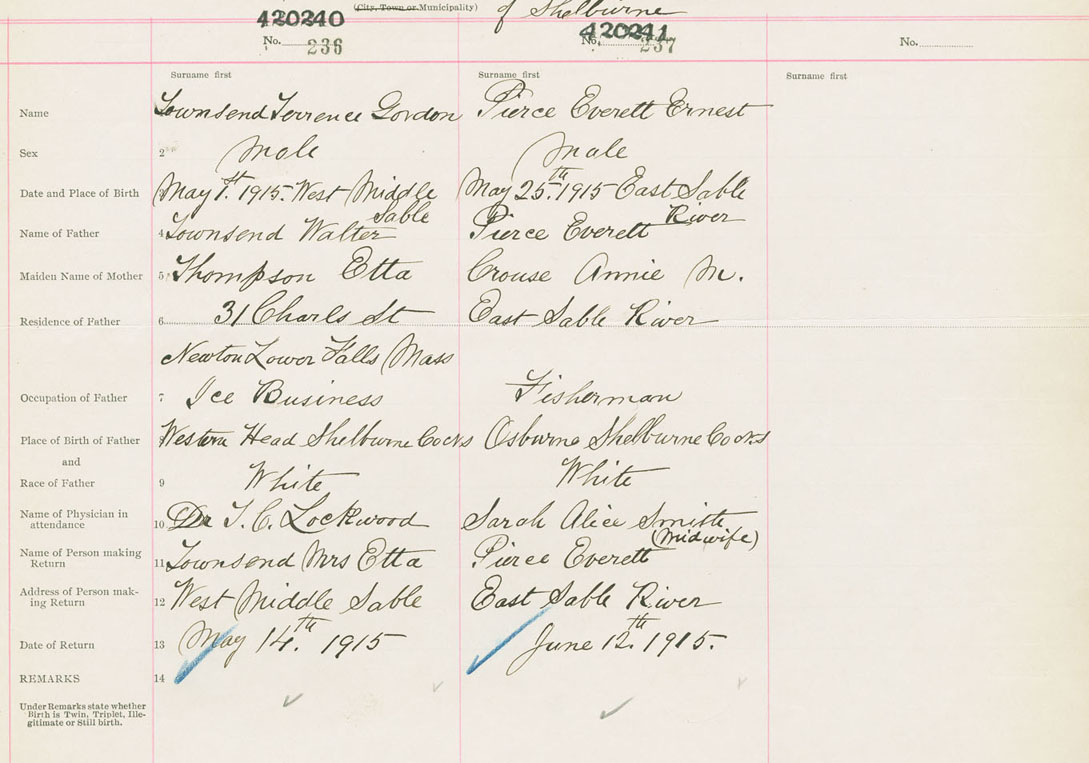 (City, Town or Municipality) of Shelburne
420240 420241
No. 236 No. 237 No.
Surname first Surname first Surname first
Name Townsend Terrence Gordon Pierce Everett Ernest
Sex 2 Male Male
Date and Place of Birth 3 May 1st. 1915. West Middle May 25th. 1915 East Sable
Sable River
Name of Father 4 Townsend Walter Pierce Everett
Maiden Name of Mother 5 Thompson Etta Crouse Annie M.
Residence of Father 6 31 Charls St East Sable River
Newton Lower Falls Mass
Occupation of Father 7 Ice Business Fisherman
Place of Birth of Father Western Head Shelburne Co N S Osburne Shelburne Co N S
and
Race of Father 9 White White
Name of Physician in
attendance 10 Dr Lockwood Sarah Alice Smith
(Midwife)
Name of Person making
Return 11 Townsend Mrs Etta Pierce Everett
Address of Person mak-
ing Return 12 West Middle Sable East Sable River
Date of Return 13 May 14th. 1915 June 12th. 1915.
REMARKS 14
Under Remarks state whether
Birth is Twin, Triplet, Ille-
gitimate or Still birth.